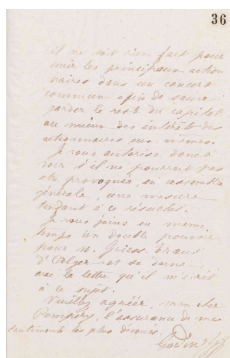 36
il ne soit rien fait pour
unir les principaux action
naires dans un concert
commun afin de sauve-
garder le reste du capital
au mieux des intérêts des
actionnaires eux-mêmes.
Je vous autorise donc à
voir s'il ne pourrait pas
être provoqué, en assemblée
générale, une mesure
tendant à ce résultat.
Je vous joins en même
temps un double pouvoir
pour M.
d'Alger et se
avec la lettre qu'il m'écrit
à ce sujet.
Veuillez agréer, mon cher
Pompéry, l'assurance de mes
sentiments les plus dévoués.